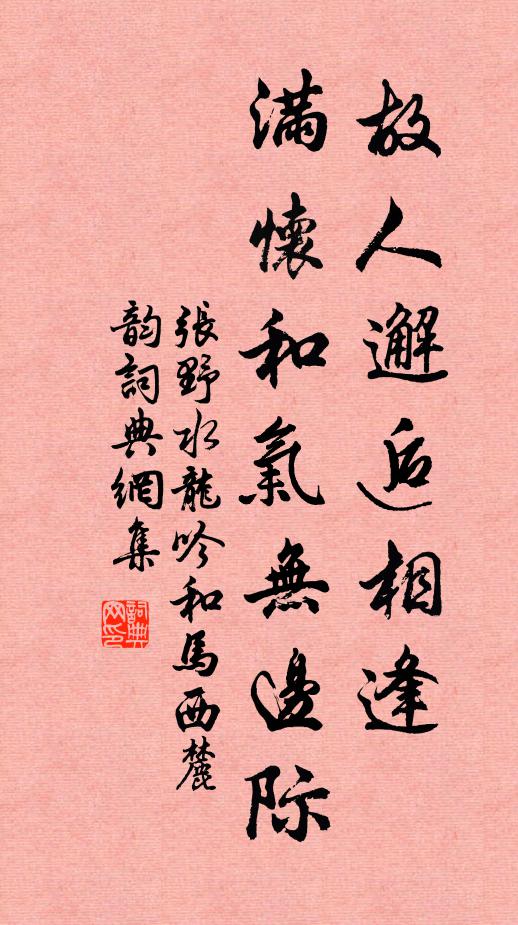 故人邂逅相逢
滿懷和氣無邊际
張野水龍吟和馬西麓
韵詞典網集
詞典網印